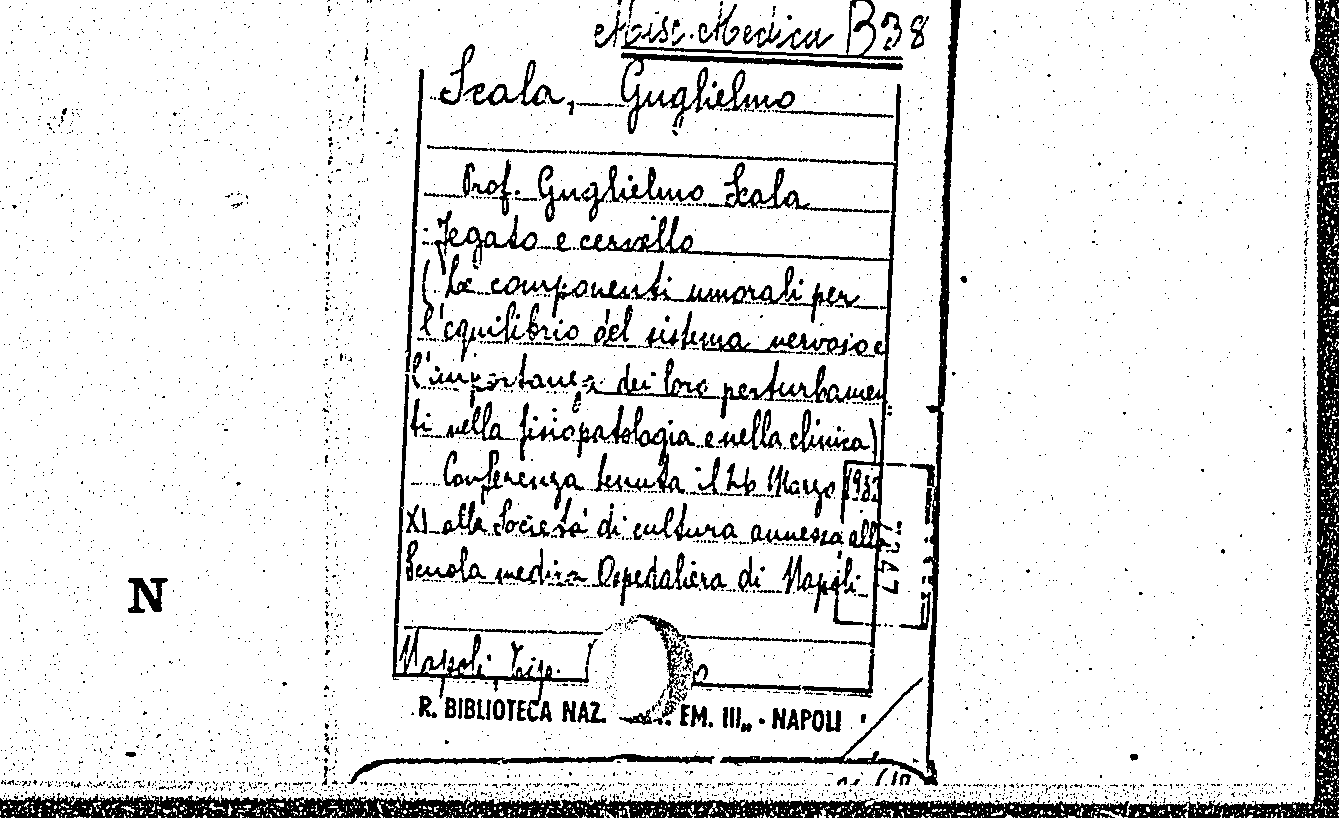 Misc. Medica B38
Scala, Guglielmo
Prof. Guglielmo Scala
: Fegato e cervello
(Le componenti umorali per
l'equilibrio del sistema nervoso e
l'importanza dei loro perturbamen
ti nella fisiopatologia e nella clinica)
Conferenza tenuta il 26 Marzo 1933
XI alla Società di cultura annessa alla
Scuola medica Ospedaliera di Napoli
Napoli, Tip.
R. BIBLIOTECA NAZ. EM. III„ - NAPOLI
N